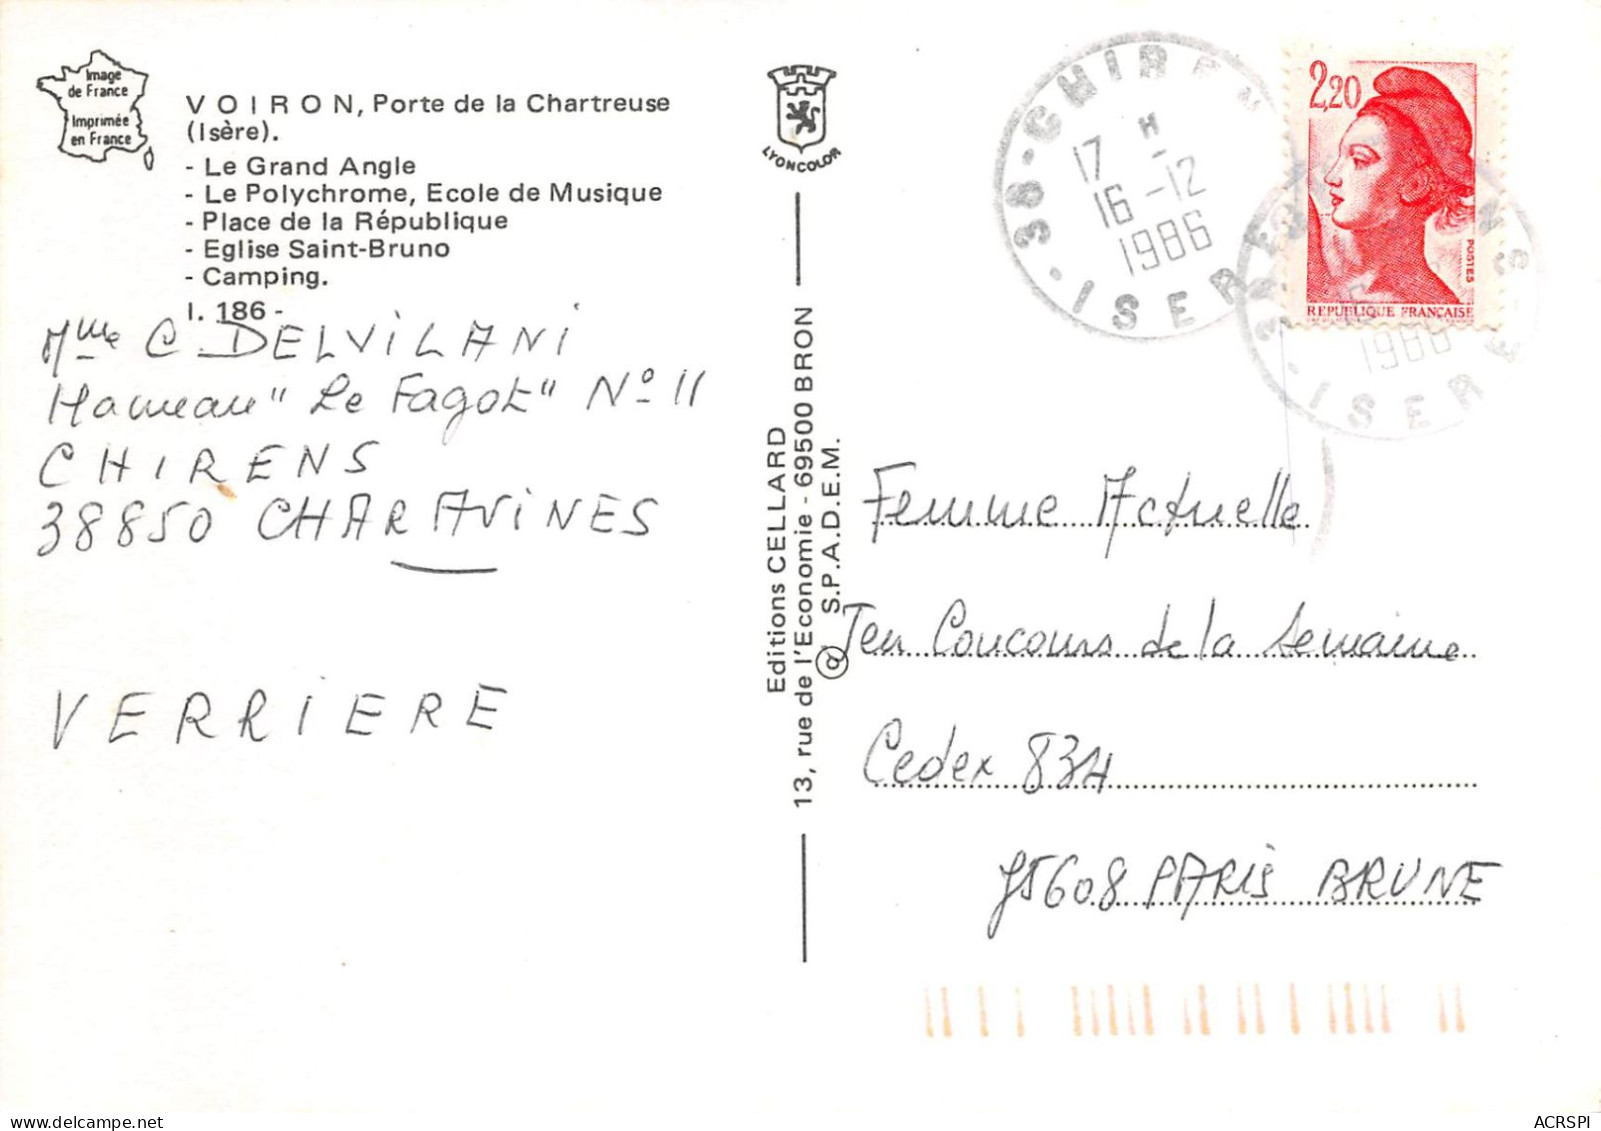 Image
de France
Imprimée
en France
VOIRON, Porte de la Chartreuse
(Isère).
- Le Grand Angle
- Le Polychrome, Ecole de Musique
- Place de la République
- Eglise Saint-Bruno
- Camping.
I. 186 -
Mme C. DELVILANI
Hameau "Le Fagot" N° 11
CHIRENS
38850 CHARAVINES
VERRIERE
LYONCOLOR
Editions CELLARD
13, rue de l'Economie - 69500 BRON
@ S.P.A.D.E.M.
38 - CHIREN
17 H
16 - 12
1986
ISERE
2,20
POSTES
REPUBLIQUE FRANÇAISE
1986
ISERE
Femme Actuelle
Jeu Concours de la Semaine
Cedex 834
75608 PARIS BRUNE
ACRSPI